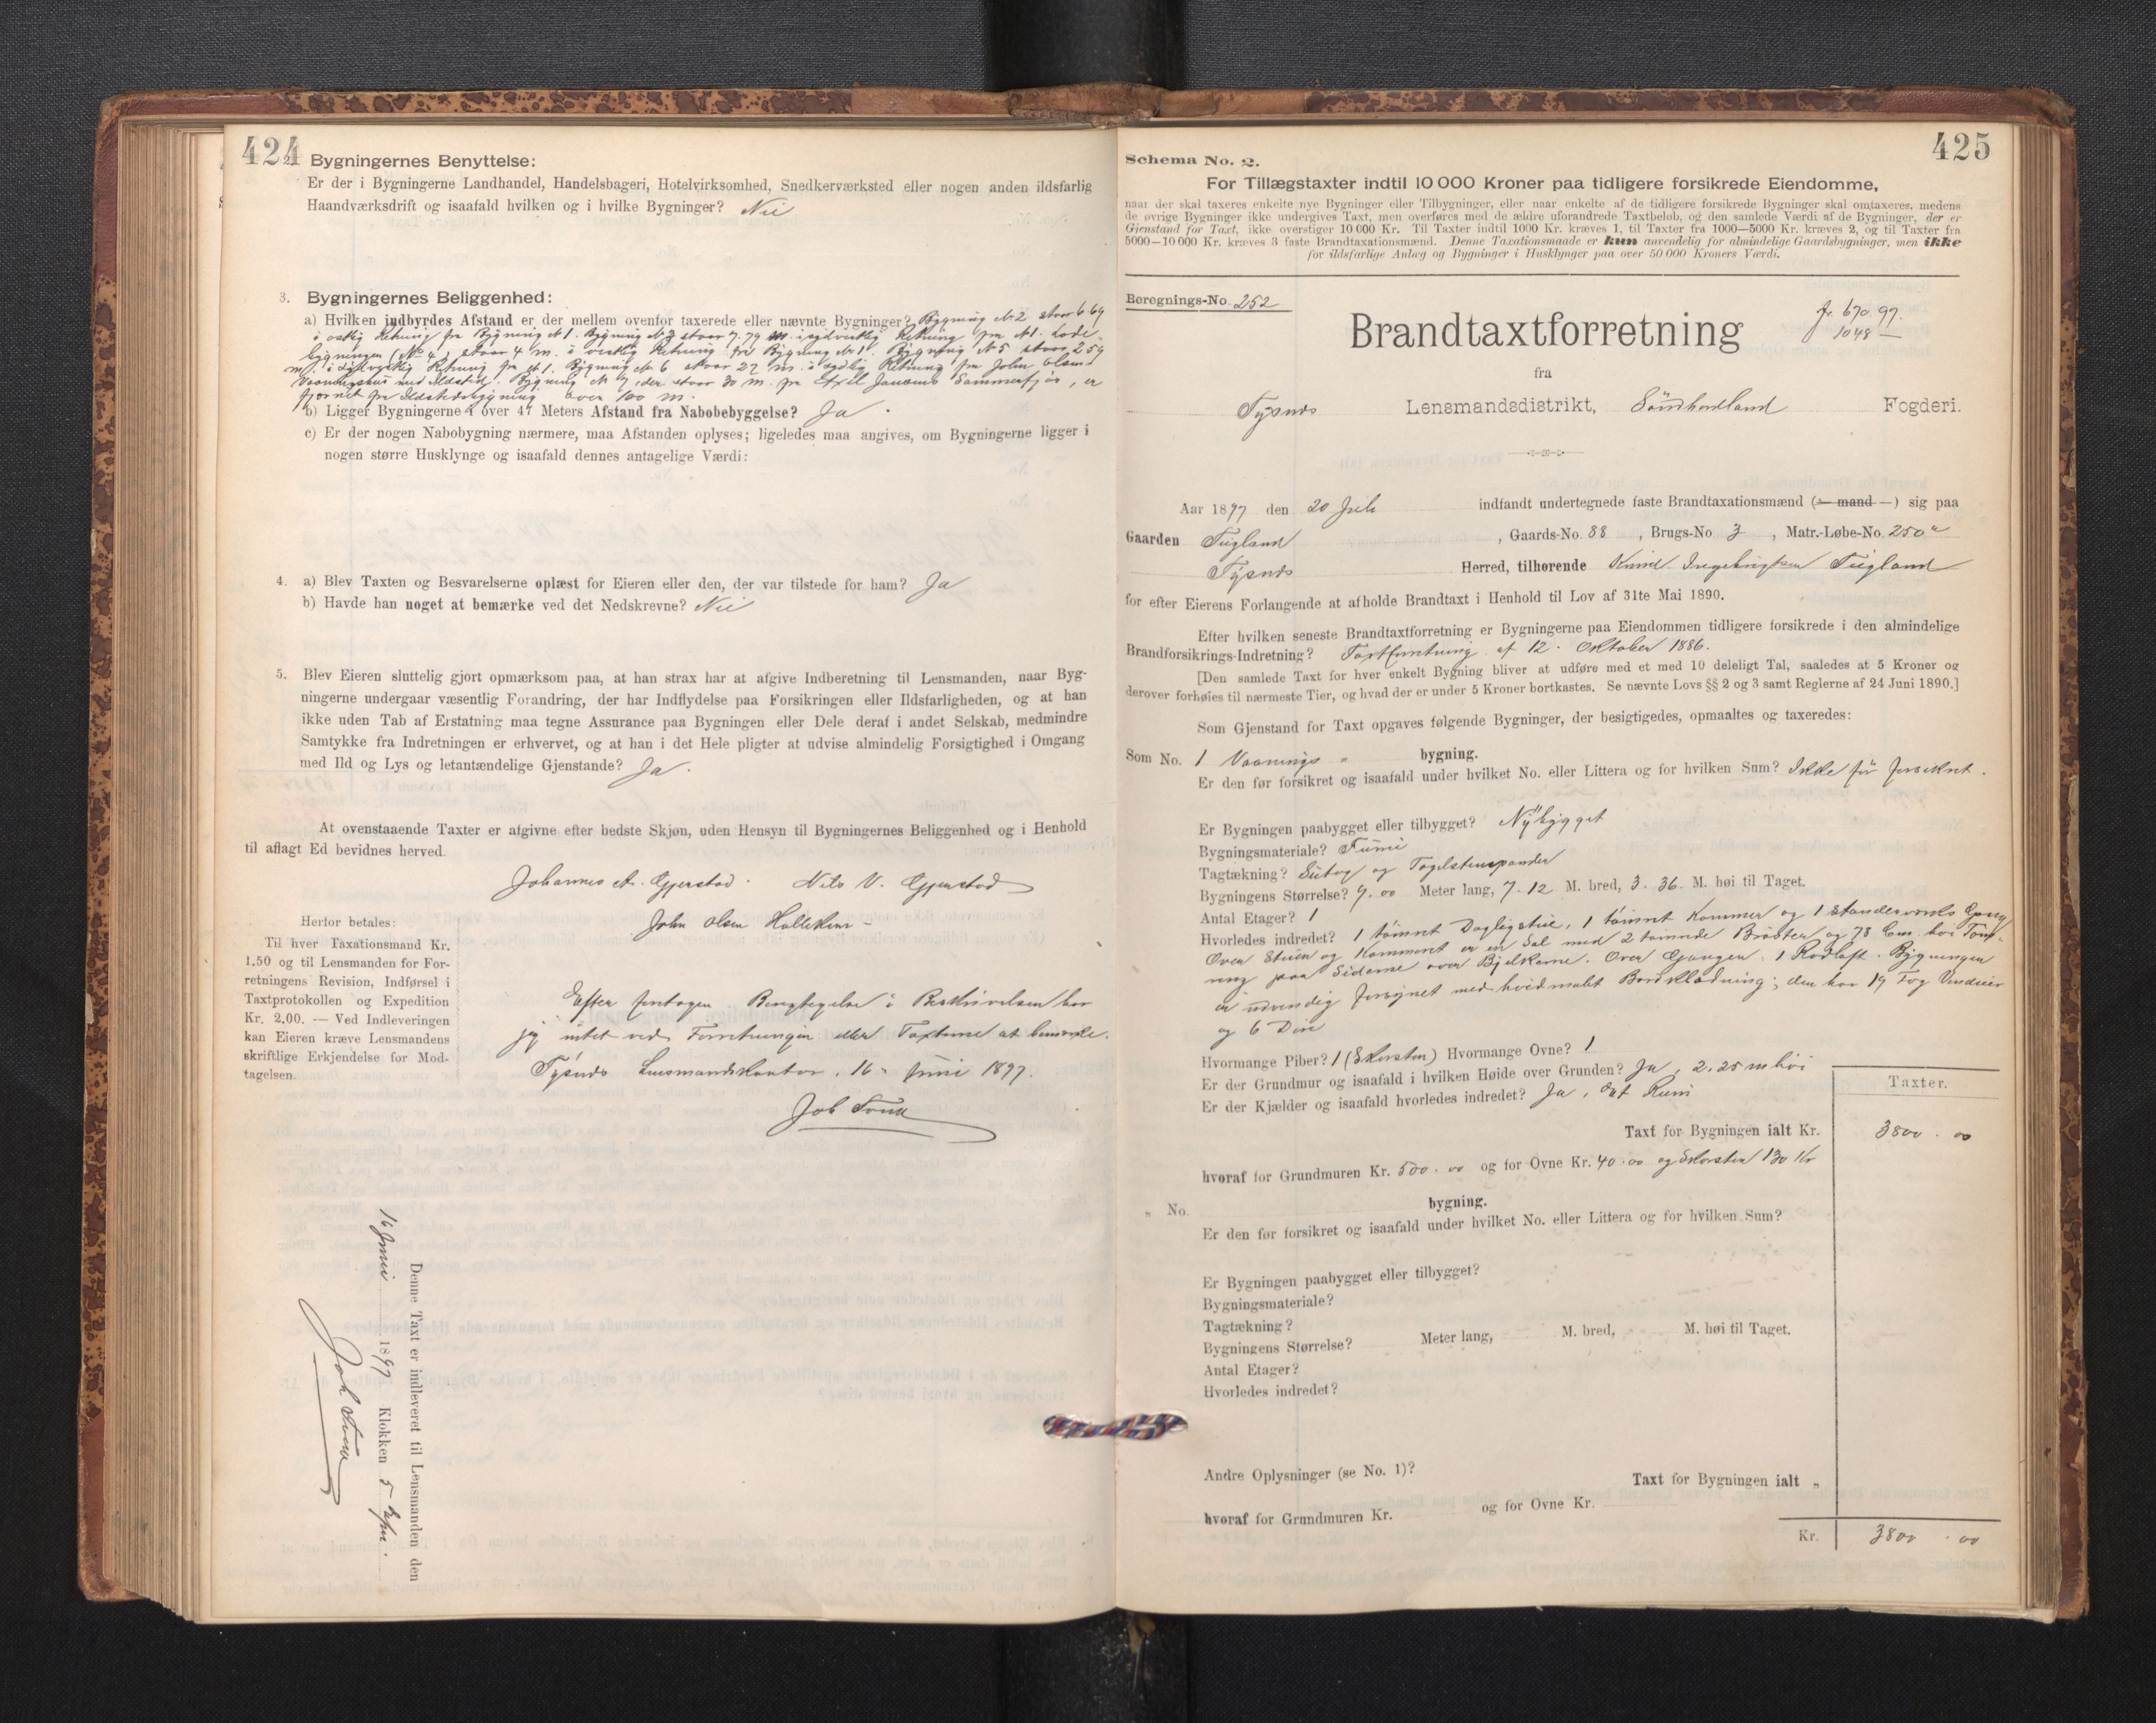 424
2. Bygningernes Benyttelse:
Er der i Bygningerne Landhandel, Handelsbageri, Hotelvirksomhed, Snedkerværksted eller nogen anden ildsfarlig
Haandværksdrift og isaafald hvilken og i hvilke Bygninger? Nei
3. Bygningernes Beliggenhed:
a) Hvilken indbyrdes Afstand er der mellem ovenfor taxerede eller nævnte Bygninger? Bygning No 2 staar 6.69
i østlig Retning fra Bygning No 1. Bygning No 3 staar 7.79 m. i sydvestlig Retning fra No 1. Lade-
bygningen (No 4) staar 4 m. i vestlig Retning fra Bygning No 1. Bygning No 5 staar 2.59
m. i sydvestlig Retning fra No 1. Bygning No 6 staar 22 m. i sydlig Retning fra John Olsens
Vaaningshus med Ildsted. Bygning No 7, der staar 30 m. fra Jansens Sommerfjøs, er
fjernet fra Ildstedsbygning over 100 m.
b) Ligger Bygningerne over 47 Meters Afstand fra Nabobebyggelse? Ja.
c) Er der nogen Nabobygning nærmere, maa Afstanden oplyses; ligeledes maa angives, om Bygningerne ligger i
nogen større Husklynge og isaafald dennes antagelige Værdi:
4. a) Blev Taxten og Besvarelserne oplæst for Eieren eller den, der var tilstede for ham? Ja
b) Havde han noget at bemærke ved det Nedskrevne? Nei
5. Blev Eieren sluttelig gjort opmærksom paa, at han strax har at afgive Indberetning til Lensmanden, naar Byg-
ningerne undergaar væsentlig Forandring, der har Indflydelse paa Forsikringen eller Ildsfarligheden, og at han
ikke uden Tab af Erstatning maa tegne Assurance paa Bygningen eller Dele deraf i andet Selskab, medmindre
Samtykke fra Indretningen er erhvervet, og at han i det Hele pligter at udvise almindelig Forsigtighed i Omgang
med Ild og Lys og letantændelige Gjenstande? Ja.
At ovenstaaende Taxter er afgivne efter bedste Skjøn, uden Hensyn til Bygningernes Beliggenhed og i Henhold
til aflagt Ed bevidnes herved.
Johannes A. Gjerstad. Nils V. Gjerstad
John Olsen
Herfor betales:
Til hver Taxationsmand Kr.
1.50 og til Lensmanden for For-
retningens Revision, Indførsel i
Taxtprotokollen og Expedition
Kr. 2.00. — Ved Indleveringen
kan Eieren kræve Lensmandens
skriftlige Erkjendelse for Mod-
tagelsen.
Efter foretagen Besigtigelse i Beskrivelsen har
jeg intet ved Forretningen eller Taxterne at bemærke.
Tysnes Lensmandskontor, 16 Juni 1897.
Denne Taxt er indleveret til Lensmanden den
16 Juni 1897 Klokken 5
425
Schema No. 2.
For Tillægstaxter indtil 10 000 Kroner paa tidligere forsikrede Eiendomme,
naar der skal taxeres enkelte nye Bygninger eller Tilbygninger, eller naar enkelte af de tidligere forsikrede Bygninger skal omtaxeres, medens
de øvrige Bygninger ikke undergives Taxt, men overføres med de ældre uforandrede Taxtbeløb, og den samlede Værdi af de Bygninger, der er
Gjenstand for Taxt, ikke overstiger 10 000 Kr. Til Taxter indtil 1000 Kr. kræves 1, til Taxter fra 1000—5000 Kr. kræves 2, og til Taxter fra
5000—10 000 Kr. kræves 3 faste Brandtaxationsmænd. Denne Taxationsmaade er kun anvendelig for almindelige Gaardsbygninger, men ikke
for ildsfarlige Anlæg og Bygninger i Husklynger paa over 50 000 Kroners Værdi.
Beregnings-No. 252
Jr. 670. 97.
1048
Brandtaxtforretning
fra
Tysnes Lensmandsdistrikt, Søndhordland Fogderi.
Aar 1897 den 20 Juli indfandt undertegnede faste Brandtaxationsmænd (— mand —) sig paa
Gaarden Tugland, Gaards-No. 88, Brugs-No 3, Matr.-Løbe-No. 250a
Tysnes Herred, tilhørende Knud Ingebrigtsen Tugland
for efter Eierens Forlangende at afholde Brandtaxt i Henhold til Lov af 31te Mai 1890.
Efter hvilken seneste Brandtaxtforretning er Bygningerne paa Eiendommen tidligere forsikrede i den almindelige
Brandforsikrings-Indretning? Taxtforretning af 12. Oktober 1886.
[Den samlede Taxt for hver enkelt Bygning bliver at udføre med et med 10 deleligt Tal, saaledes at 5 Kroner og
derover forhøies til nærmeste Tier, og hvad der er under 5 Kroner bortkastes. Se nævnte Lovs §§ 2 og 3 samt Reglerne af 24 Juni 1890.]
Som Gjenstand for Taxt opgaves følgende Bygninger, der besigtigedes, opmaaltes og taxeredes:
Som No. 1 Vaanings bygning.
Er den før forsikret og isaafald under hvilket No. eller Littera og for hvilken Sum? Ikke før forsikret.
Er Bygningen paabygget eller tilbygget? Nybygget
Bygningsmateriale?
Tagtækning? og Taglstenspander
Bygningens Størrelse? 9.00 Meter lang, 7.12 M. bred, 3.36 M. høi til Taget.
Antal Etager? 1
Hvorledes indredet? 1 tømret Dagligstue, 1 tømret Kammer og 1 Standerverks Gang
Over Stuen og Kammeret er en Sal med 2 tømrede Brøster og 78 Cm. høi Tøm-
ring paa Siderne over Bjelkerne. Over Gangen 1 Rodloft. Bygningen
er udvendig forsynet med hvidmalt Bordklædning; den har 19 Fag Vinduer
og 6 Døre
Hvormange Piber? 1 (Skorsten) Hvormange Ovne? 1
Er der Grundmur og isaafald i hvilken Høide over Grunden? Ja, 2.25 m høi
Er der Kjælder og isaafald hvorledes indredet? Ja, et Rum
Taxter.
Taxt for Bygningen ialt Kr. 3800.00
hvoraf for Grundmuren Kr. 500.00 og for Ovne Kr. 40.00 og Skorsten 130 Kr
„ No. bygning.
Er den før forsikret og isaafald under hvilket No. eller Littera og for hvilken Sum?
Er Bygningen paabygget eller tilbygget?
Bygningsmateriale?
Tagtækning?
Bygningens Størrelse? Meter lang, M. bred, M. høi til Taget.
Antal Etager?
Hvorledes indredet?
Andre Oplysninger (se No. 1)?
Taxt for Bygningen ialt „
hvoraf for Grundmuren Kr. og for Ovne Kr.
Kr. 3800.00